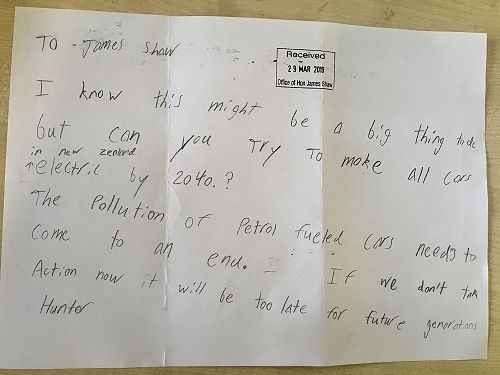 To James Shaw
Received
29 MAR 2019
Office of Hon James Shaw
I know this might be a big thing to do
but can you try to make all cars
in new zealand
↑electric by 2040.?
The Pollution of Petrol fueled cars needs to
come to an end. If we don't take
Action now it will be too late for future generations
Hunter